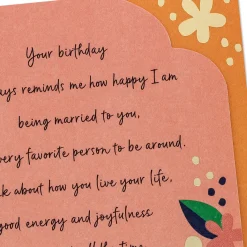 Your birthday
reminds me how happy I am
being married to you,
favorite person to be around.
about how you live your life,
good energy and joyfulness